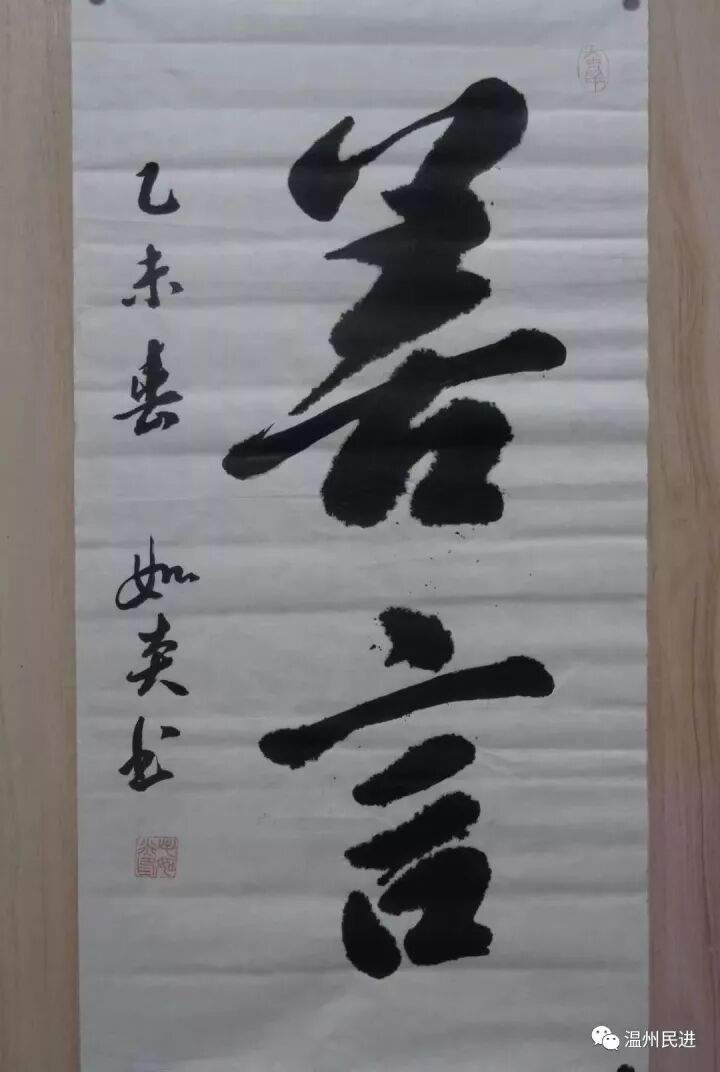 善言
乙未春 如奕书
温州民进